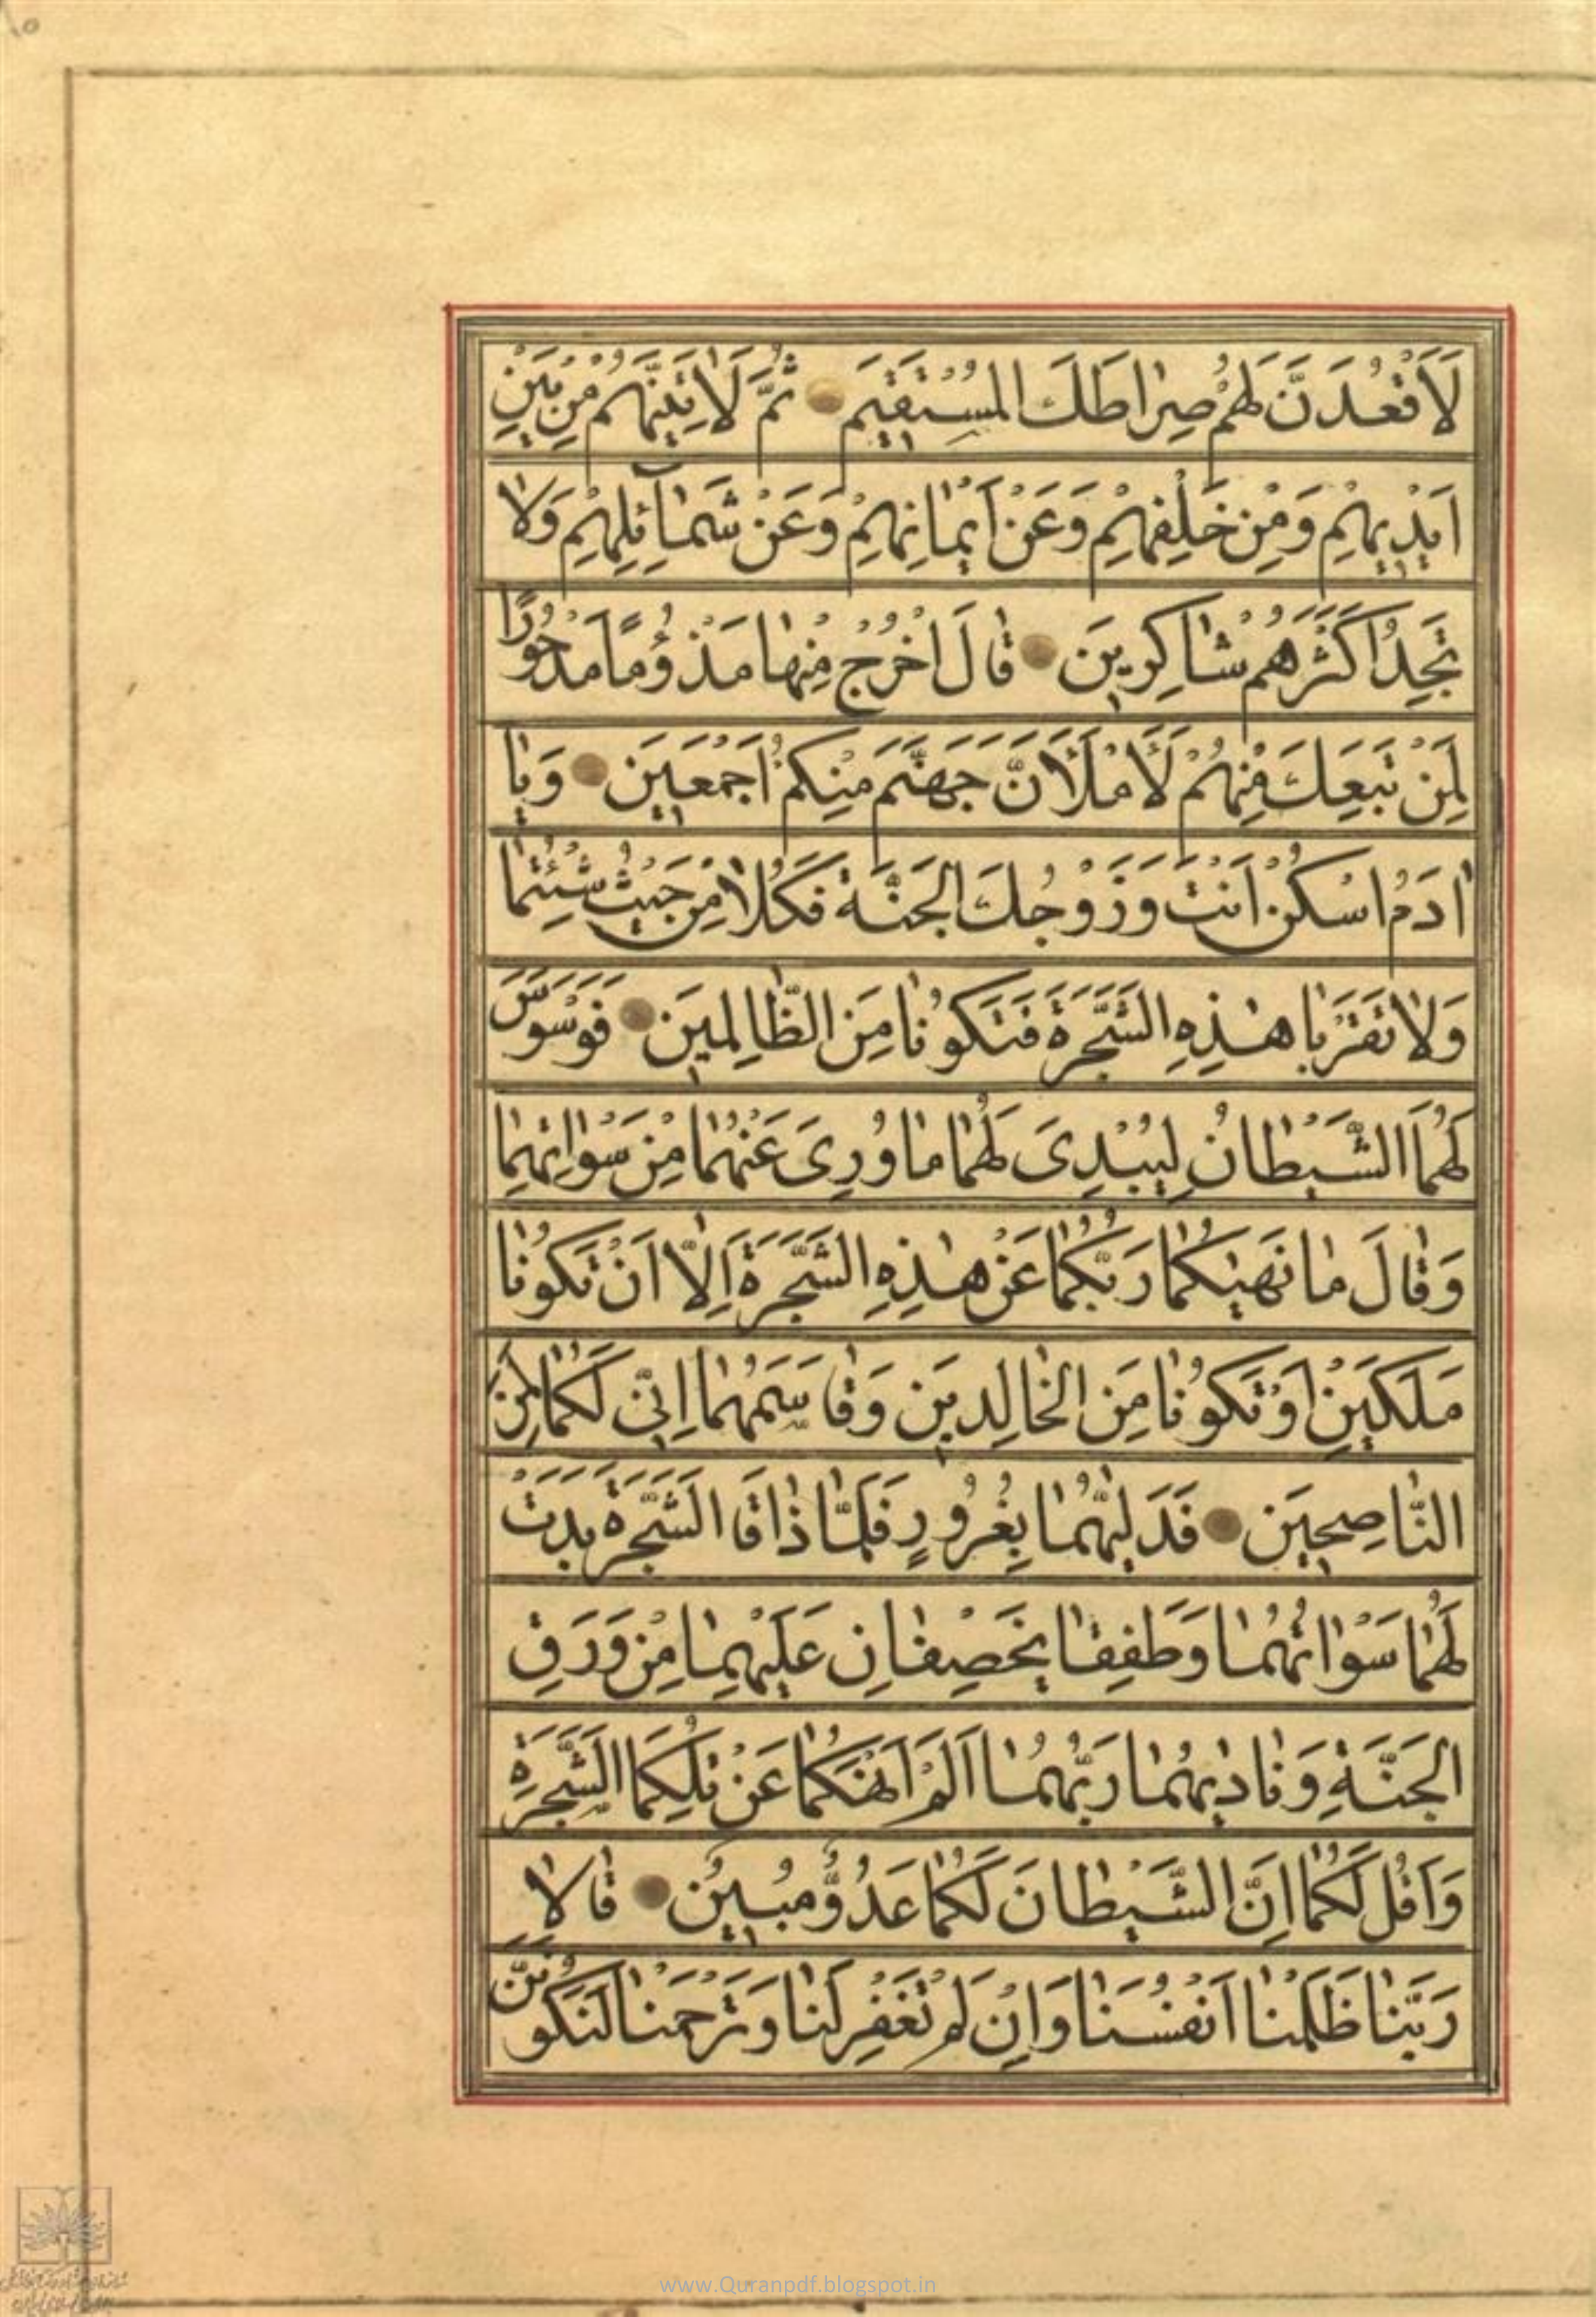 لَأَقْعُدَنَّ لَهُمْ صِرَاطَكَ الْمُسْتَقِيمَ ثُمَّ لَاٰتِيَنَّهُمْ مِنْ بَيْنِ
اَيْدِيهِمْ وَمِنْ خَلْفِهِمْ وَعَنْ اَيْمَانِهِمْ وَعَنْ شَمَآئِلِهِمْ وَلَا
تَجِدُ اَكْثَرَهُمْ شَاكِرِينَ قَالَ اخْرُجْ مِنْهَا مَذْؤُمًا مَدْحُورًا
لَمَنْ تَبِعَكَ مِنْهُمْ لَأَمْلَأَنَّ جَهَنَّمَ مِنْكُمْ اَجْمَعِينَ وَيَا
اٰدَمُ اسْكُنْ اَنْتَ وَزَوْجُكَ الْجَنَّةَ فَكُلَا مِنْ حَيْثُ شِئْتُمَا
وَلَا تَقْرَبَا هٰذِهِ الشَّجَرَةَ فَتَكُونَا مِنَ الظَّالِمِينَ فَوَسْوَسَ
لَهُمَا الشَّيْطَانُ لِيُبْدِىَ لَهُمَا مَا وُرِىَ عَنْهُمَا مِنْ سَوْاٰتِهِمَا
وَقَالَ مَا نَهٰيكُمَا رَبُّكُمَا عَنْ هٰذِهِ الشَّجَرَةِ اِلَّا اَنْ تَكُونَا
مَلَكَيْنِ اَوْ تَكُونَا مِنَ الْخَالِدِينَ وَقَاسَمَهُمَا اِنِّى لَكُمَا لَمِنَ
النَّاصِحِينَ فَدَلّٰيهُمَا بِغُرُورٍ فَلَمَّا ذَاقَا الشَّجَرَةَ بَدَتْ
لَهُمَا سَوْاٰتُهُمَا وَطَفِقَا يَخْصِفَانِ عَلَيْهِمَا مِنْ وَرَقِ
الْجَنَّةِ وَنَادٰيهُمَا رَبُّهُمَا اَلَمْ اَنْهَكُمَا عَنْ تِلْكُمَا الشَّجَرَةِ
وَاَقُلْ لَكُمَا اِنَّ الشَّيْطَانَ لَكُمَا عَدُوٌّ مُبِينٌ قَالَا
رَبَّنَا ظَلَمْنَا اَنْفُسَنَا وَاِنْ لَمْ تَغْفِرْ لَنَا وَتَرْحَمْنَا لَنَكُونَنَّ
www.Quranpdf.blogspot.in